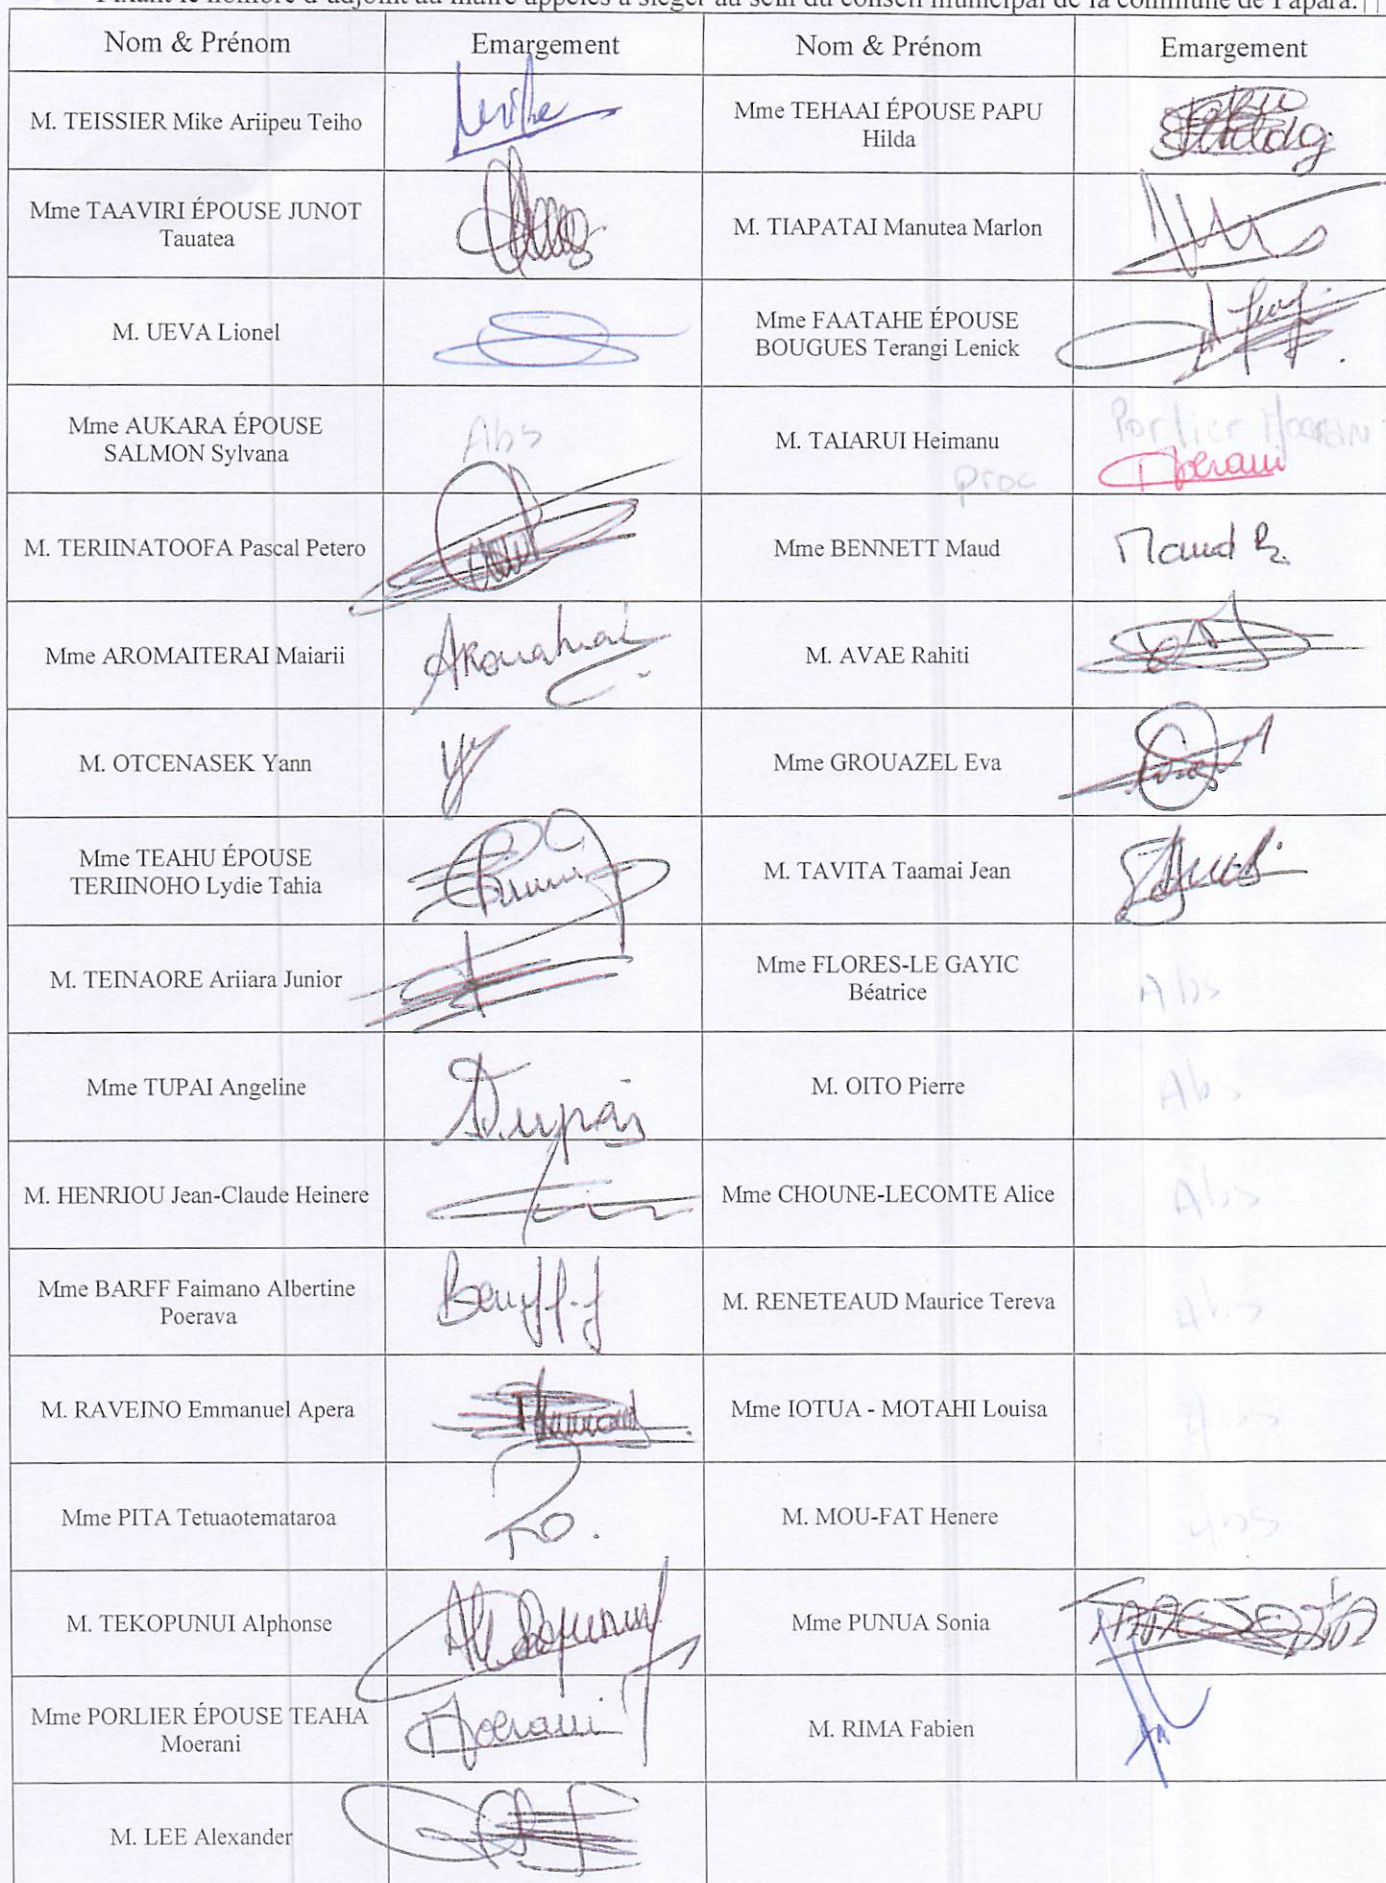 Fixant le nombre d'adjoint au maire appelés à siéger au sein du conseil municipal de la commune de Papara.
Nom & Prénom Emargement Nom & Prénom Emargement
M. TEISSIER Mike Ariipeu Teiho
Mme TEHAAI ÉPOUSE PAPU
Hilda
Mme TAAVIRI ÉPOUSE JUNOT
Tauatea
M. TIAPATAI Manutea Marlon
M. UEVA Lionel
Mme FAATAHE ÉPOUSE
BOUGUES Terangi Lenick
Mme AUKARA ÉPOUSE
SALMON Sylvana
Abs
M. TAIARUI Heimanu
proc
Porlier Moerani
Moerani
M. TERIINATOOFA Pascal Petero
Mme BENNETT Maud
Maud B.
Mme AROMAITERAI Maiarii
M. AVAE Rahiti
M. OTCENASEK Yann
Mme GROUAZEL Eva
Mme TEAHU ÉPOUSE
TERIINOHO Lydie Tahia
M. TAVITA Taamai Jean
M. TEINAORE Ariiara Junior
Mme FLORES-LE GAYIC
Béatrice
Abs
Mme TUPAI Angeline
M. OITO Pierre
Abs
M. HENRIOU Jean-Claude Heinere
Mme CHOUNE-LECOMTE Alice
Abs
Mme BARFF Faimano Albertine
Poerava
M. RENETEAUD Maurice Tereva
Abs
M. RAVEINO Emmanuel Apera
Mme IOTUA - MOTAHI Louisa
Abs
Mme PITA Tetuaotemataroa
M. MOU-FAT Henere
Abs
M. TEKOPUNUI Alphonse
Mme PUNUA Sonia
Mme PORLIER ÉPOUSE TEAHA
Moerani
Moerani
M. RIMA Fabien
M. LEE Alexander